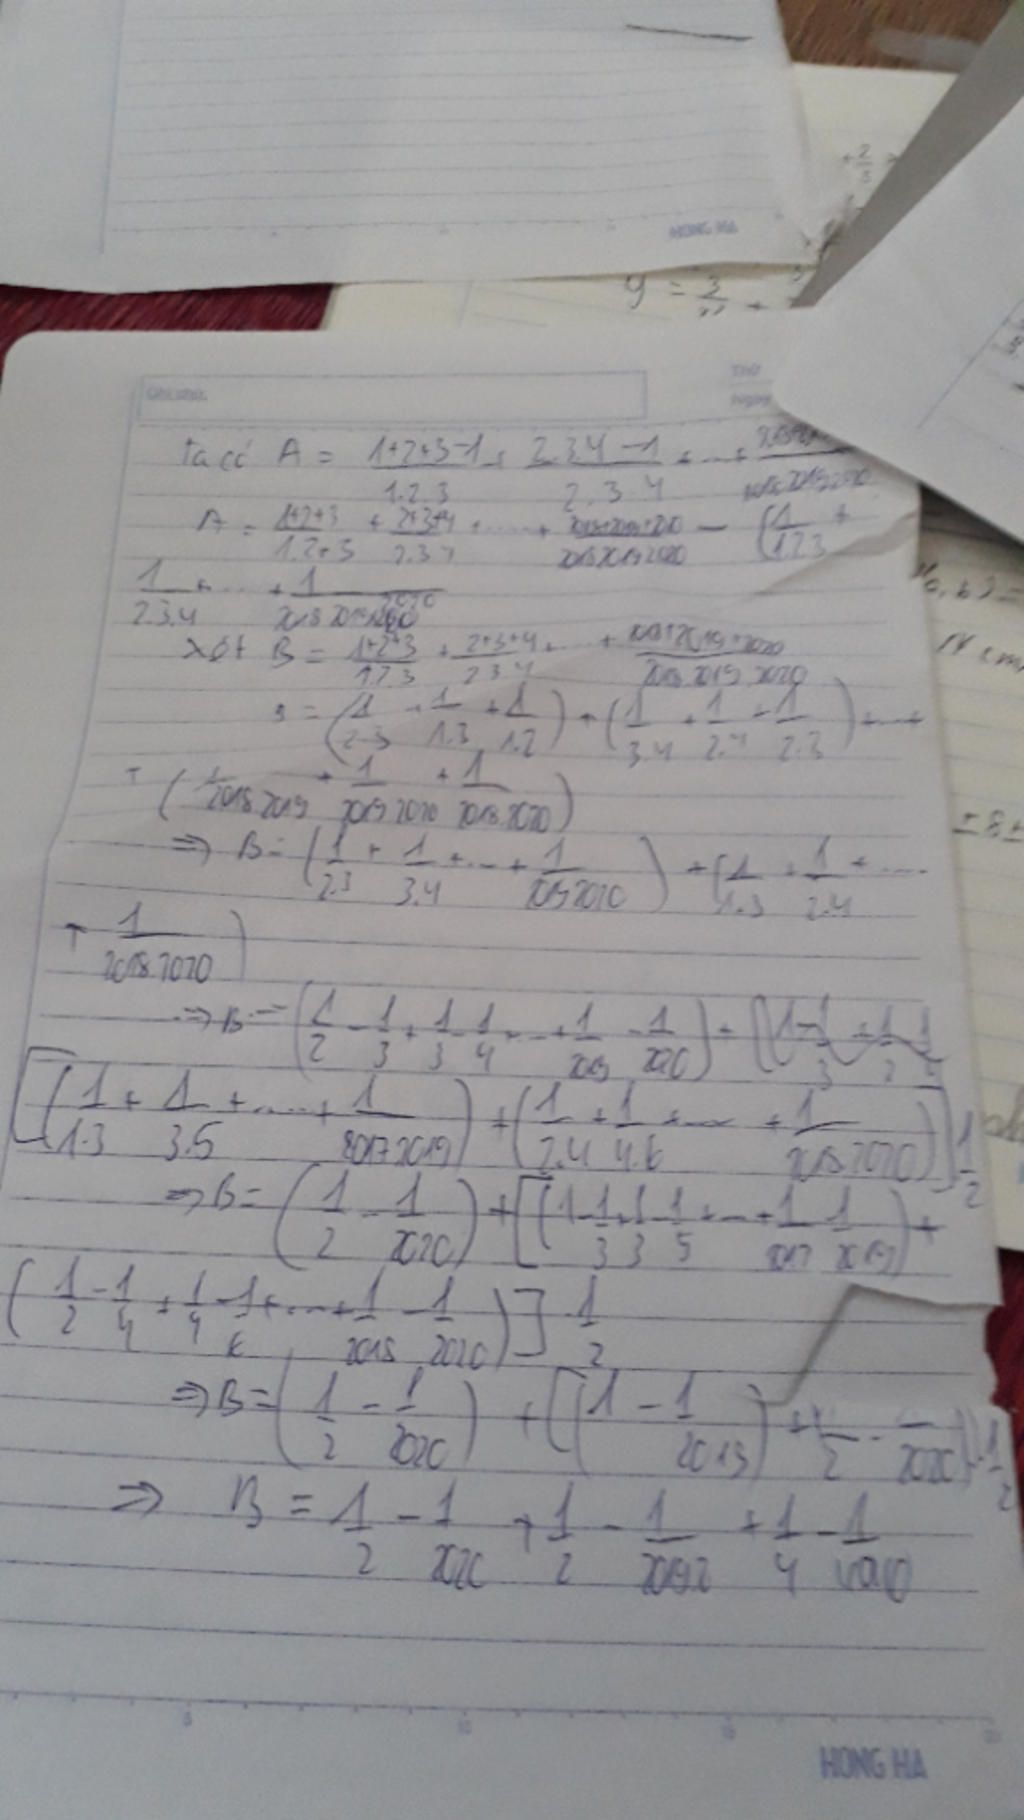 HONG HA
Ghi chú:
Thứ
Ngày
Ta có A = 1+2+3-1/1.2.3 + 2.3.4-1/2.3.4 + ... +
A = 1+2+3/1.2+3 + 2+3+4/2.3.4 + ..... + 2018+2019+2020/2018.2019.2020 - (1/1.2.3 +
1/2.3.4 + ... + 1/2018.2019.2020
Xét B = 1+2+3/1.2.3 + 2+3+4/2.3.4 + ... + 2018+2019+2020/2018.2019.2020
B = (1/2.3 + 1/1.3 + 1/1.2) + (1/3.4 + 1/2.4 + 1/2.3) + ...+
+ (1/2018.2019 + 1/2019.2020 + 1/2018.2020)
⇒ B = (1/2.3 + 1/3.4 + ... + 1/2019.2020) + (1/1.3 + 1/2.4 + ....
+ 1/2018.2020)
⇒ B = (1/2 - 1/3 + 1/3 - 1/4 + ... + 1/2019 - 1/2020) +
[(1/1.3 + 1/3.5 + .... + 1/2017.2019) + (1/2.4 + 1/4.6 + ... + 1/2018.2020)] 1/2
⇒ B = (1/2 - 1/2020) + [(1 - 1/3 + 1/3 - 1/5 + ... + 1/2017 - 1/2019) +
(1/2 - 1/4 + 1/4 - 1/6 + ... + 1/2018 - 1/2020)] . 1/2
⇒ B = (1/2 - 1/2020) + [(1 - 1/2019) + (1/2 - 1/2020)] . 1/2
⇒ B = 1/2 - 1/2020 + 1/2 - 1/2019.2 + 1/4 - 1/4040
HONG HA